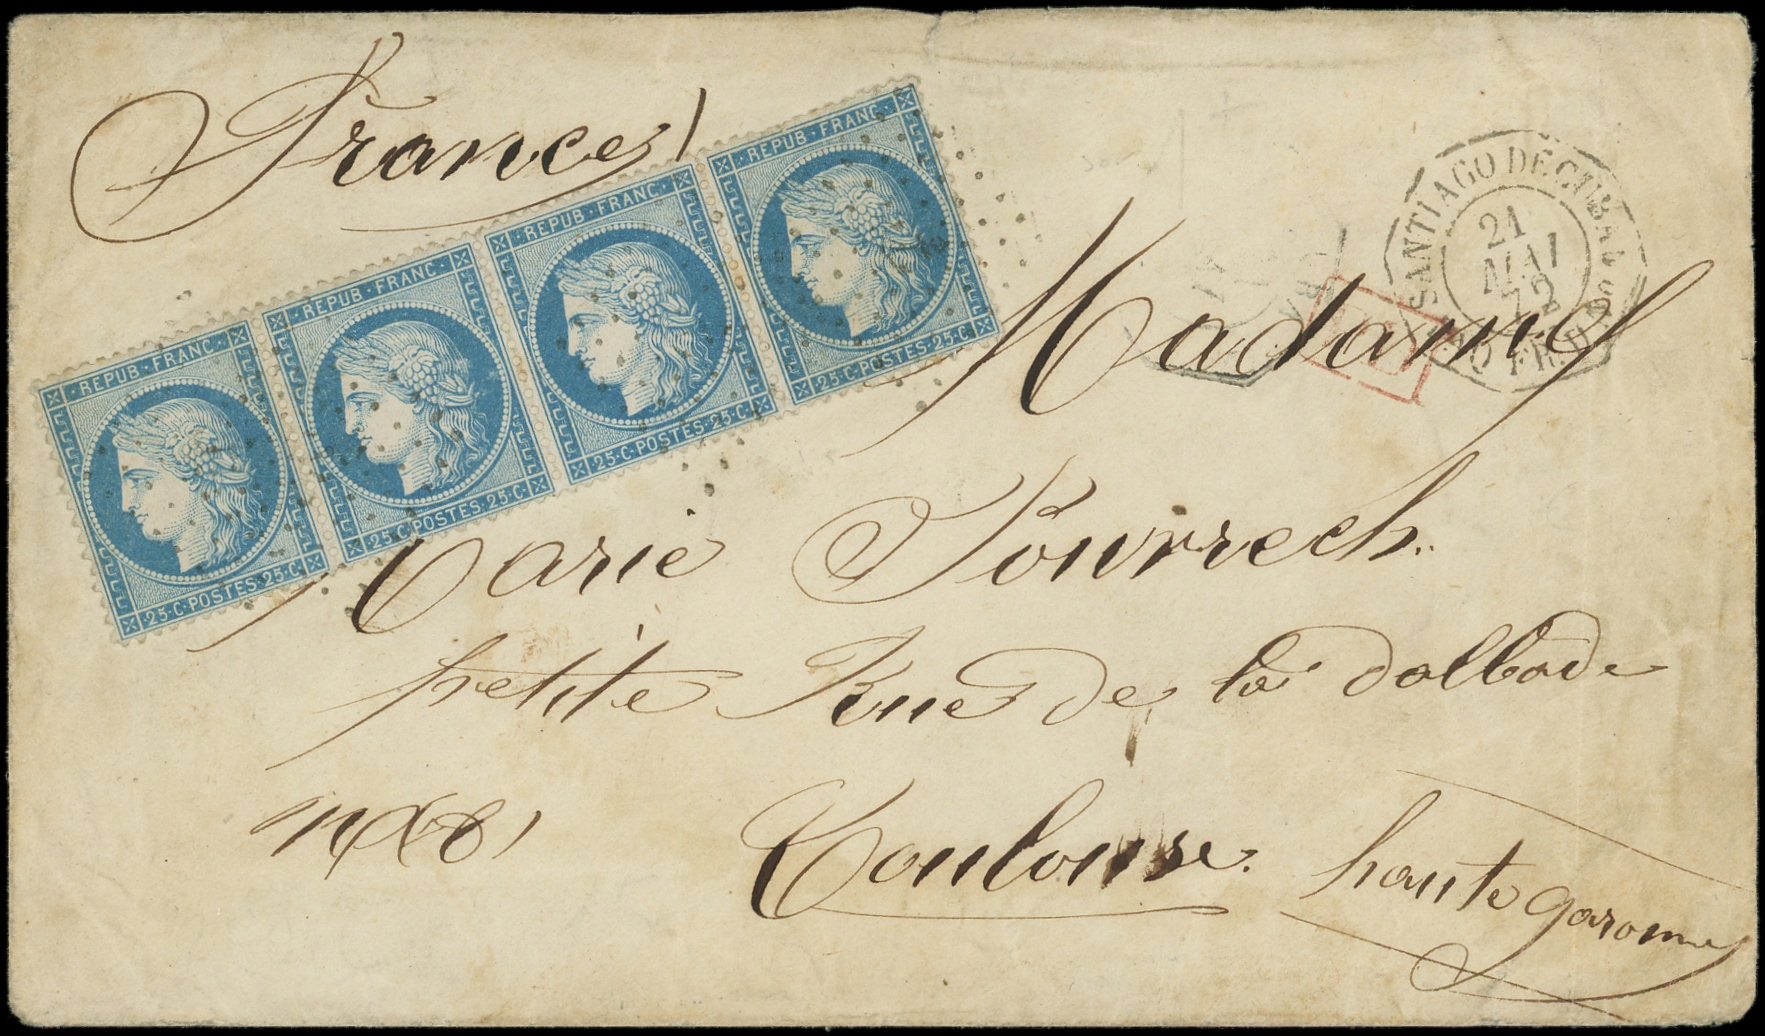 France
REPUB·FRANC·
25·C·POSTES·25·C·
REPUB·FRANC·
25·C·POSTES·25·C·
REPUB·FRANC·
25·C·POSTES·25·C·
REPUB·FRANC·
25·C·POSTES·25·C·
SANTIAGO DE CUBA
21
MAI
72
Madame
Marie Pourrech
petite Rue de la dalbade
Toulouse.
haute garonne